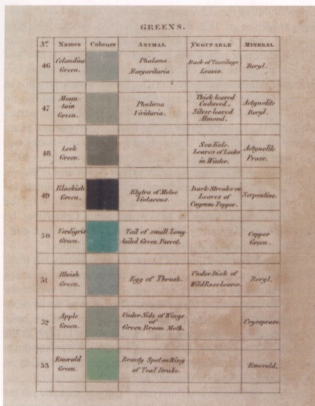 GREENS.
No. Names Colours ANIMAL VEGETABLE MINERAL
46 Celandine Green. Phalæna Margaritaria. Back of Tussilage Leaves. Beryl.
47 Mountain Green. Phalæna Viridaria. Thick leaved Cudweed, Silver leaved Almond. Actynolite Beryl.
48 Leek Green. Sea Kale. Leaves of Leeks in Winter. Actynolite Prase.
49 Blackish Green. Elytra of Meloe Violaceus. Dark Streaks on Leaves of Cayenne Pepper. Serpentine.
50 Verdigris Green. Tail of small Long tailed Green Parrot. Copper Green.
51 Bluish Green. Egg of Thrush. Under Disk of Wild Rose Leaves. Beryl.
52 Apple Green. Under Side of Wings of Green Broom Moth. Crysoprase.
53 Emerald Green. Beauty Spot on Wing of Teal Drake. Emerald.